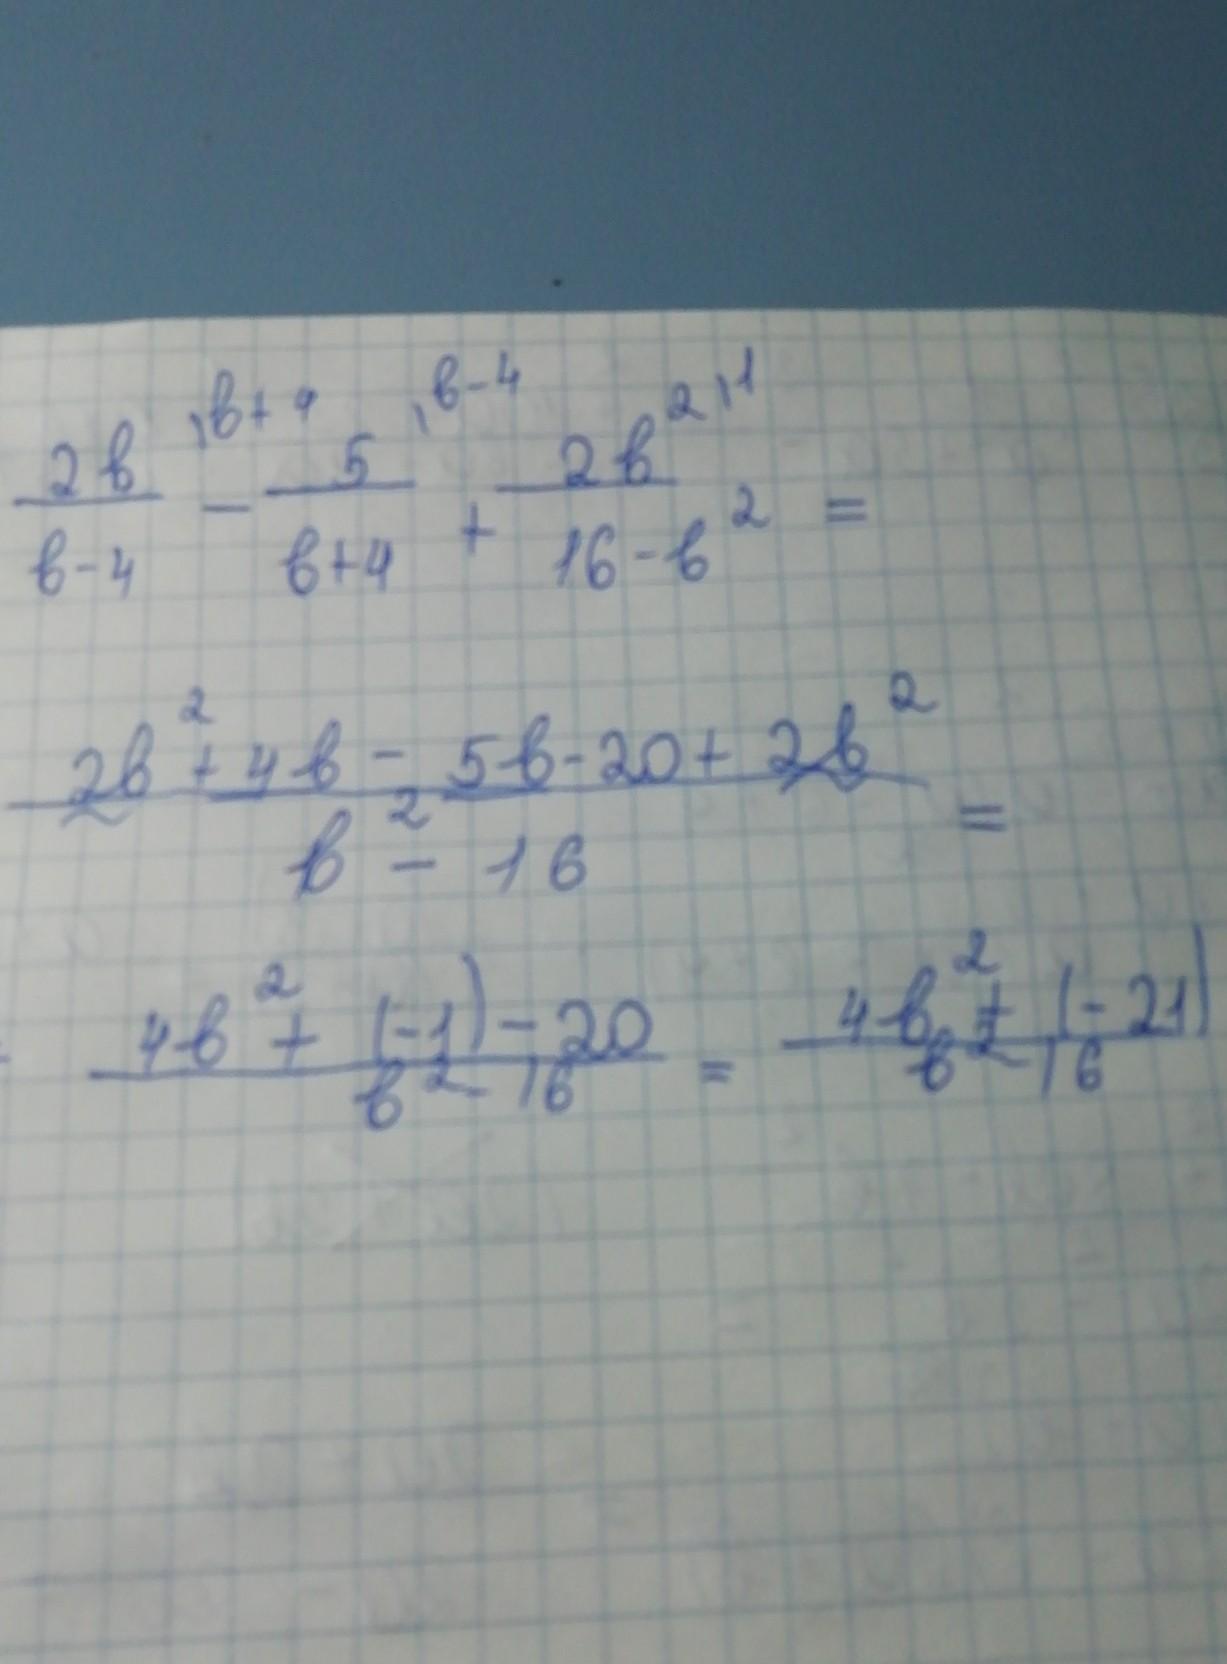 2в/в-4 ⁾ᵇ⁺⁴ - 5/в+4 ⁾ᵇ⁻⁴ + 2в² ⁾¹/16-в² =
2в²+4в-5в-20+2в²/в²-16 =
4в²+(-1)-20/в²-16 = 4в²+(-21)/в²-16